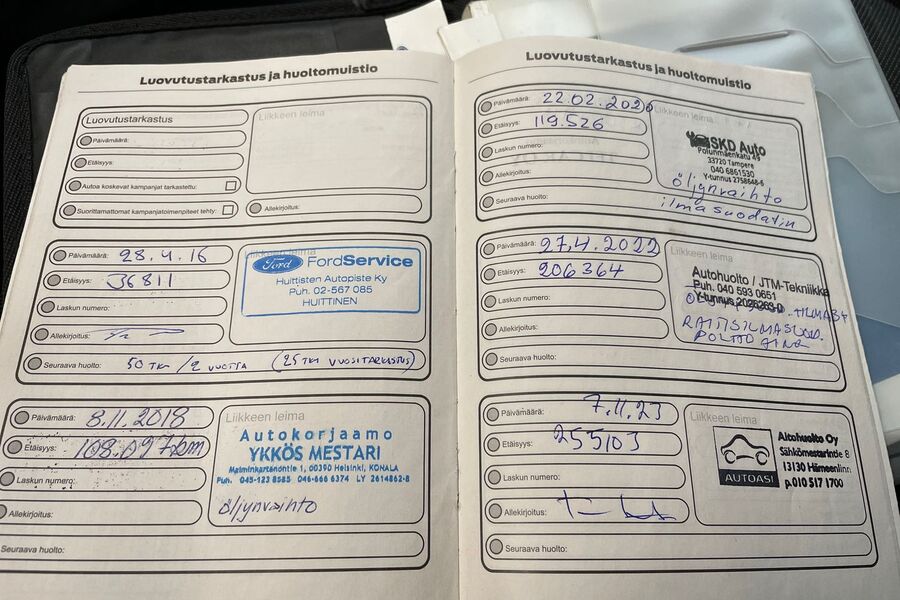 Luovutustarkastus ja huoltomuistio
Luovutustarkastus
Päivämäärä:
Etäisyys:
Autoa koskevat kampanjat tarkastettu:
Suorittamattomat kampanjatoimenpiteet tehty:
Liikkeen leima
Allekirjoitus:
Päivämäärä: 28.4.16
Etäisyys: 36811
Laskun numero:
Allekirjoitus:
Seuraava huolto: 50 TKM / 2 VUOTTA (25 TKM VUOSITARKASTUS)
Liikkeen leima
Ford FordService
Huittisten Autopiste Ky
Puh. 02-567 085
HUITTINEN
Päivämäärä: 8.11.2018
Etäisyys: 108.097km
Laskun numero:
Allekirjoitus:
Seuraava huolto:
Liikkeen leima
Autokorjaamo
YKKÖS MESTARI
Malminkartanontie 1, 00390 Helsinki, KONALA
Puh. 045-123 8585 046-666 6374 LY 2614862-8
öljynvaihto
Luovutustarkastus ja huoltomuistio
Päivämäärä: 22.02.2020
Etäisyys: 119.526
Laskun numero:
Allekirjoitus:
Seuraava huolto:
Liikkeen leima
SKD Auto
Polunmäenkatu 49
33720 Tampere
040 6861530
Y-tunnus 2758648-6
öljynvaihto
ilmasuodatin
Päivämäärä: 27.4.2022
Etäisyys: 206364
Laskun numero:
Allekirjoitus:
Seuraava huolto:
Liikkeen leima
Autohuolto / JTM-Tekniikka
Puh. 040 593 0651
Y-tunnus 2026263-0
RAITISILMASUOD.
Päivämäärä: 7.11.23
Etäisyys: 255103
Laskun numero:
Allekirjoitus:
Seuraava huolto:
Liikkeen leima
AUTOASI
Aitohuolto Oy
Sähkömestarintie 8
13130 Hämeenlinn
p.010 517 1700